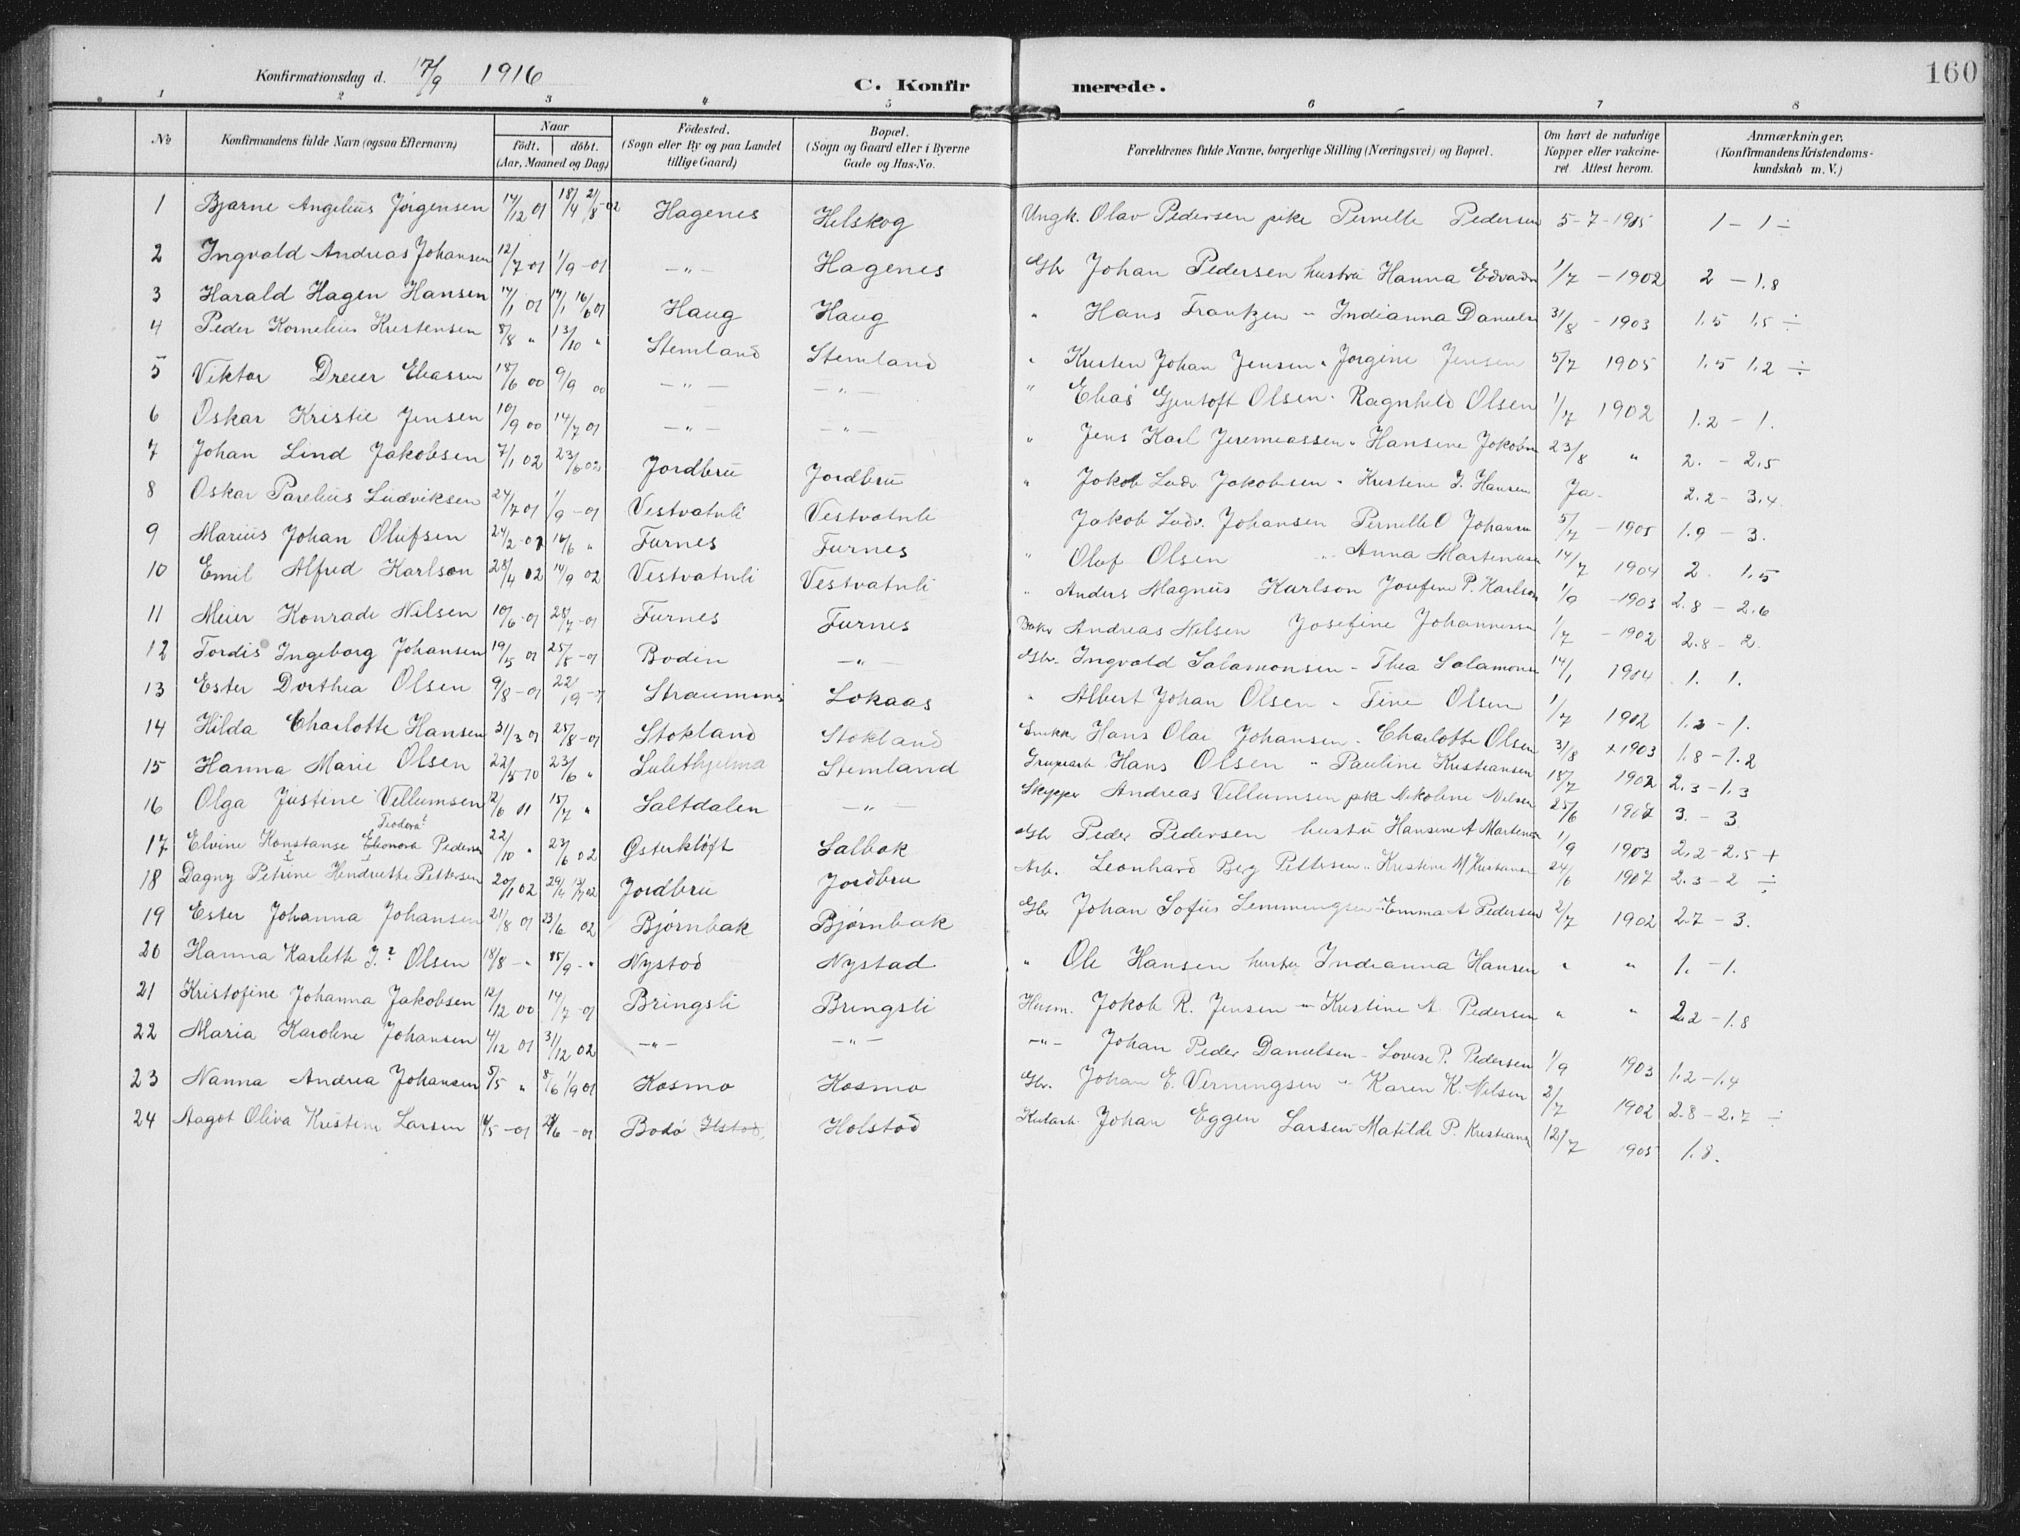 160
Konfirmationsdag d. 17/9 1916 C. Konfirmerede.
1 2 3 4 5 6 7 8
No Konfirmandens fulde Navn (ogsaa Efternavn) Naar født. døbt. (Aar, Maaned og Dag) Födested. (Sogn eller By og paa Landet tillige Gaard) Bopæl. (Sogn og Gaard eller i Byerne Gade og Hus-No. Forældrenes fulde Navne, borgerlige Stilling (Næringsvei) og Bopæl. Om havt de naturlige Kopper eller vakcineret Attest herom. Anmærkninger. (Konfirmandens Kristendomskundskab m. V.)
1 Bjarne Angelius Jørgensen 14/12 01 18/4 21/8-02 Hagenes Helskog Ungk. Olav Pedersen pike Pernelle Pedersen 5-7-1905 1 - 1 ÷
2 Ingvald Andreas Johansen 12/7-01 1/9-01 -"- Hagenes Gbr Johan Pedersen hustru Hanna 1/7 - 1902 2 - 1.8
3 Harald Hagen Hansen 14/1 01 14/1 16/6 01 Haug Haug " Hans Frantzen " Indianna 31/8 - 1903 1.5 1.5 ÷
4 Peder Kornelius Kristensen 8/8 " 13/10 " Stemland Stemland " Kristen Johan Jensen " Jorgine Jensen 5/7 1905 1.5 1.2 ÷
5 Viktor Dreier Eliassen 18/6 00 9/9 00 -"- -"- " Elias Gjentoft Olsen " Ragnhild Olsen 1/7 1902 1.2 - 1.
6 Oskar Kristie Jensen 10/9 00 14/7 01 -"- -"- " Jens Karl Jeremiassen " Hansine 23/8 " 2. - 2.5
7 Johan Lind Jakobsen 7/1 02 23/6 02 Jordbru Jordbru " Jakob Ludv Jakobsen " Kristine J. Hansen Ja - 2.2 - 3.4
8 Oskar Parelius Ludviksen 24/7 01 1/9-01 Vestvatnli Vestvatnli Jakob Ludv. Johansen Pernelle O Johansen 5/7 - 1905 1.9 - 3.
9 Marius Johan Olufsen 24/2-01 16/6 " Furnes Furnes " Oluf Olsen " Anna 14/7 1904 2. 1.5
10 Emil Alfred Karlson 28/4 02 14/9 02 Vestvatnli Vestvatnli " Anders Magnus Karlson Josefine P. Karlson 1/9 - 1903 2.8 - 2.6
11 Meier Konradi Nilsen 10/6-01 28/7-01 Furnes Furnes Andreas Nilsen Josefine Johannessen 1/7 - 1902 2.8 - 2.
12 Tordis Ingeborg Johansen 19/5 01 25/8-01 Bodin -"- Gbr. Ingvald Salamonsen - Thea Salamonsen 14/1 1904 1. 1.
13 Ester Dorthea Olsen 9/8-01 22/9- Straumnes Lokaas " Albert Johan Olsen " Tine Olsen 1/7 1902 1.2 - 1.
14 Hilda Charlotte Hansen 31/3 01 25/8-01 Stokland Stokland Hans Olai Johansen - Charlotte Olsen 31/8 1903 1.8 - 1.2
15 Hanna Marie Olsen 22/5 23/6 " Sulethjelma Stemland Grupearb Hans Olsen " Pauline Kristiansen 18/7 1902 2.3 - 1.3
16 Olga Justine Villumsen 12/6 01 15/7 " Saltdalen -"- Skipper Andreas Villumsen pike Nikoline Nilsen 25/6 3. - 3
17 Elvine Konstanse Eleonora Teodora Pedersen 22/10 " 27/6 02 Østerkløft Salbak Gbr Peder Pedersen hustru Hansine A Martens 1/9 1903 2.2 - 2.5 +
18 Dagny Petrine Hendriette Pettersen 20/1 02 29/4 13/7 02 Jordbru Jordbru Arb. Leonhard Berg Pettersen " Kristine M 24/6 1907 2.3 - 2 ÷
19 Ester Johanna Johansen 21/8 01 23/6 02 Bjørnbak Bjørnbak Gbr Johan Sofus Lemmingsen - Emma A Pedersen 2/7 1902 2.7 - 3.
20 Hanna Karlette J. Olsen 18/8 - " 15/9 - " Nystad Nystad " Ole Hansen hustru Indianna Hansen " " 1. - 1.
21 Kristofine Johanna Jakobsen 12/12 00 14/7-01 Bringsli Bringsli Husm. Jakob R. Jensen " Kristine A. Pedersen " " 2.2 - 1.8
22 Maria Karoline Johansen 4/12 01 31/12 02 -"- -"- -"- Johan Peder Danielsen - Lovise P. Pedersen 1/9 1903 1.2 - 1.4
23 Nanna Andrea Johansen 5/5 " 8/6 1/9 01 Kosmo Kosmo Gbr. Johan E. Verningsen " Karen K. Nilsen 2/7 1902 2.8 - 2.7 ÷
24 Aagot Oliva Kristine Larsen -01 -01 Bodø Holstad Johan Eggen Larsen - Matilde P. 12/7 1905 1.8.